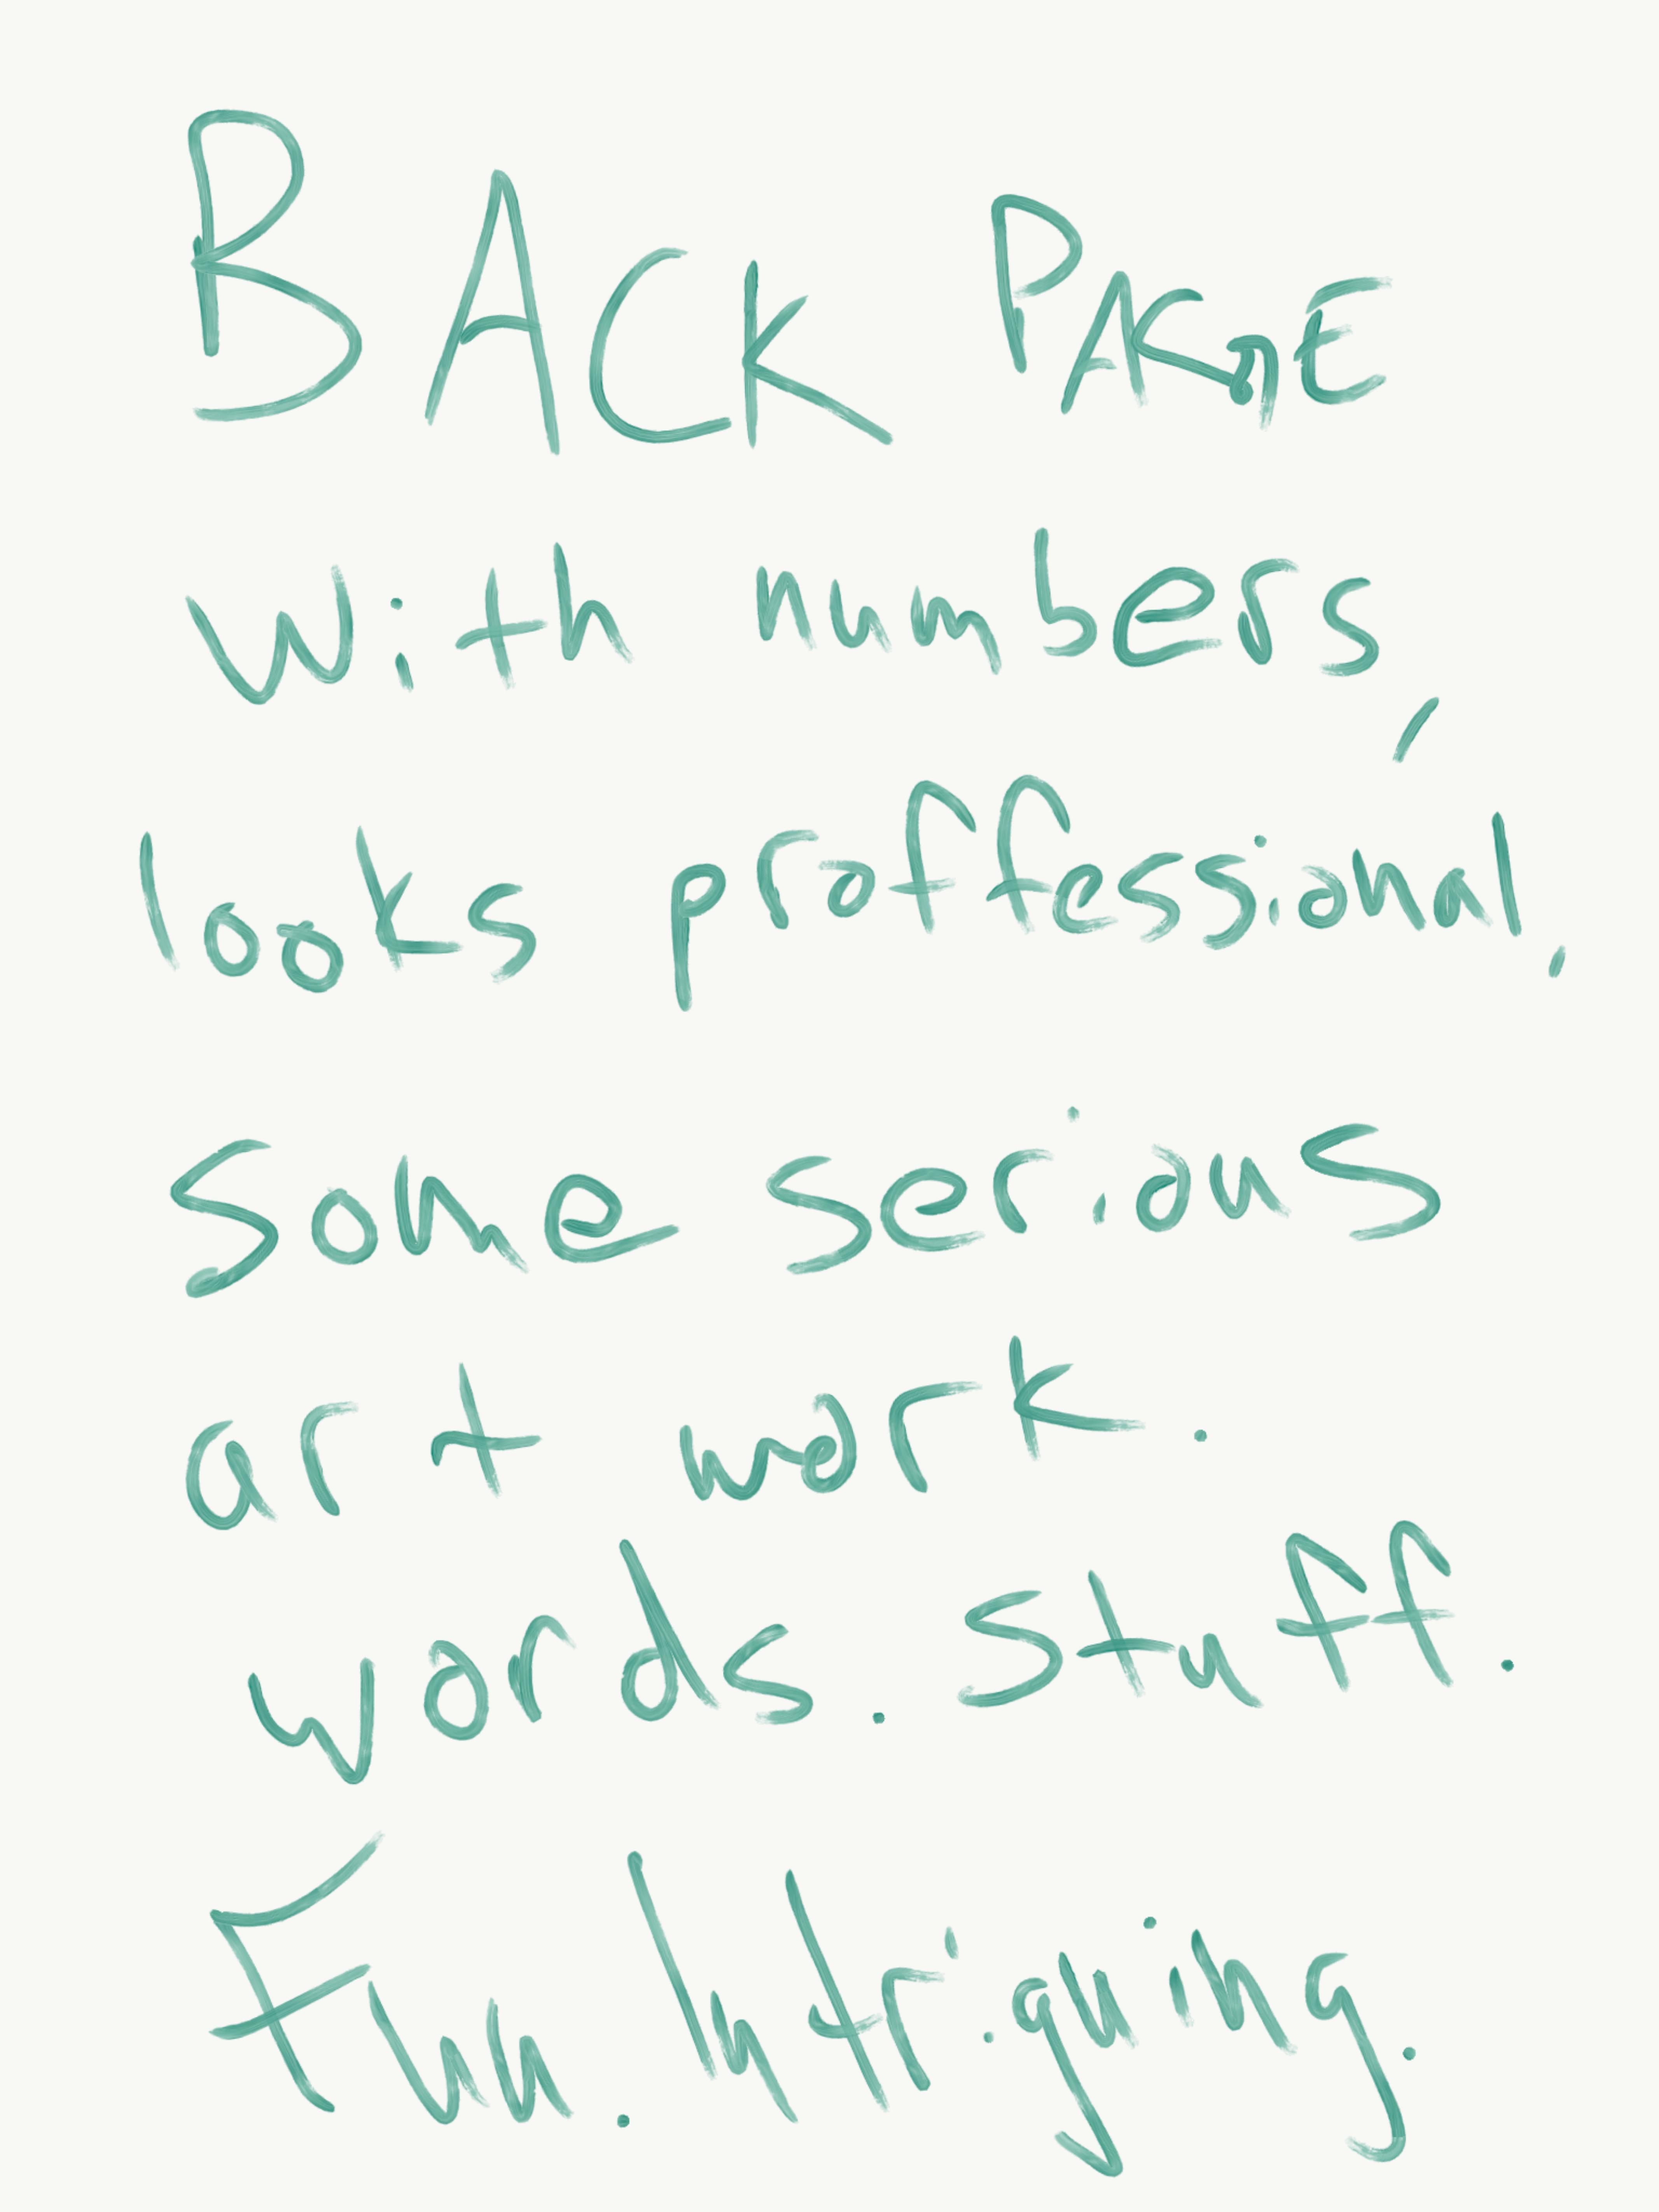 BACK PAGE
With numbers,
looks proffessional,
Some serious
art work.
words. stuff.
Fun. Intriguing.